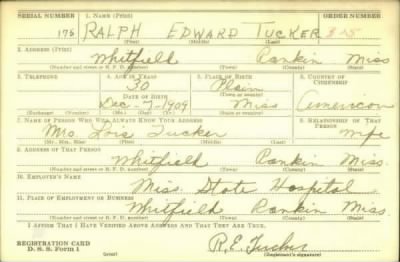 SERIAL NUMBER 1. NAME (Print) ORDER NUMBER
175 RALPH EDWARD TUCKER
(First) (Middle) (Last)
2. ADDRESS (Print)
Whitfield Rankin Miss
(Number and street or R. F. D. number) (Town) (County) (State)
3. TELEPHONE 4. AGE IN YEARS 5. PLACE OF BIRTH 6. COUNTRY OF CITIZENSHIP
30 Plain
(Town or county)
DATE OF BIRTH
Dec-7-1909 Miss American
(Exchange) (Number) (Mo.) (Day) (Yr.) (State or country)
7. NAME OF PERSON WHO WILL ALWAYS KNOW YOUR ADDRESS 8. RELATIONSHIP OF THAT PERSON
Mrs. Lois Tucker wife
(Mr., Mrs., Miss) (First) (Middle) (Last)
9. ADDRESS OF THAT PERSON
Whitfield Rankin Miss.
(Number and street or R. F. D. number) (Town) (County) (State)
10. EMPLOYER'S NAME
Miss. State Hospital
11. PLACE OF EMPLOYMENT OR BUSINESS
Whitfield Rankin Miss.
(Number and street or R. F. D. number) (Town) (County) (State)
I AFFIRM THAT I HAVE VERIFIED ABOVE ANSWERS AND THAT THEY ARE TRUE.
REGISTRATION CARD
D. S. S. Form 1 (over) R.E. Tucker
(Registrant's signature)